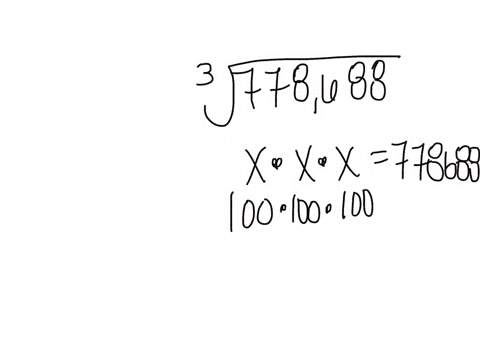 3√778,688
X • X • X = 778688
100 • 100 • 100